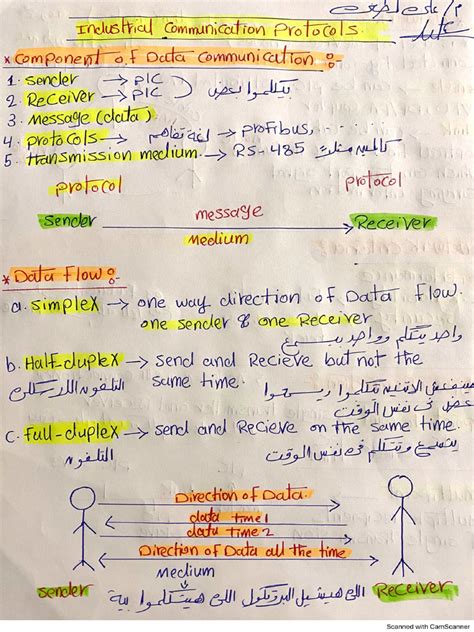 Industrial Communication Protocols.
* Component of Data Communication :
1. Sender → PLC
2. Receiver → PLC يتكلموا بعض
3. Message (data)
4. protocols → لغة تفاهم → profibus, ....
5. transmission medium. → RS-485 كابل
protocol protocol
Sender message Receiver
Medium
* Data flow :
a. simplex → one way direction of Data flow.
one sender & one Receiver
واحد يتكلم وواحد يسمع
b. Half-duplex → send and Recieve but not the
same time.
التلفون اللاسلكي مينفعش الاتنين يتكلموا ويسمعوا
بعض في نفس الوقت
c. full-duplex → send and Recieve on the same time.
التلفون يسمع ويتكلم في نفس الوقت
Direction of Data.
data time 1
data time 2
Direction of Data all the time
Medium
sender Receiver
اللي هيشيل البرتكول اللي هيتكلموا بية
Scanned with CamScanner